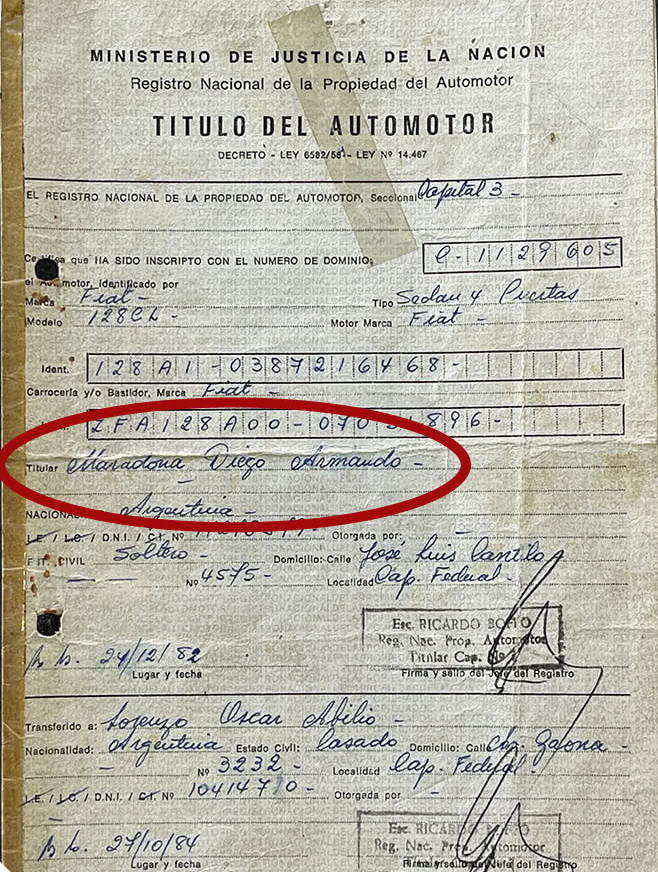 MINISTERIO DE JUSTICIA DE LA NACION
Registro Nacional de la Propiedad del Automotor
TITULO DEL AUTOMOTOR
DECRETO - LEY 6582/58 - LEY Nº 14.467
EL REGISTRO NACIONAL DE LA PROPIEDAD DEL AUTOMOTOR, Seccional Capital 3 -
Certifica que HA SIDO INSCRIPTO CON EL NUMERO DE DOMINIO: C - 1129605
el Automotor, identificado por
Marca Fiat - Tipo Sedan 4 Puertas
Modelo 128CL - Motor Marca Fiat -
Ident. 128A1-0387216468-
Carrocería y/o Bastidor, Marca Fiat -
ZFA128A00-07031896-
Titular Maradona Diego Armando -
NACIONAL Argentina -
L.E./ L.C./ D.N.I. / C.I. Nº Otorgada por: -
CIVIL Soltero - Domicilio: Calle Jose Luis Cantilo
Nº 4575 - Localidad Cap. Federal -
Esc. RICARDO BOFFO
Reg. Nac. Prop. Automotor
Titular Cap. Nº
Bs As. 24/12/82
Lugar y fecha Firma y sello del Jefe del Registro
Transferido a: Lorenzo Oscar Abilio -
Nacionalidad: Argentina Estado Civil: Casado Domicilio: Calle Gaona -
- Nº 3232 - Localidad Cap. Federal -
L.E./ L.C./ D.N.I. / C.I. Nº Otorgada por -
Esc. RICARDO BOFFO
Reg. Nac. Prop. Automotor
Bs As. 27/10/84
Lugar y fecha Firma y sello del Jefe del Registro